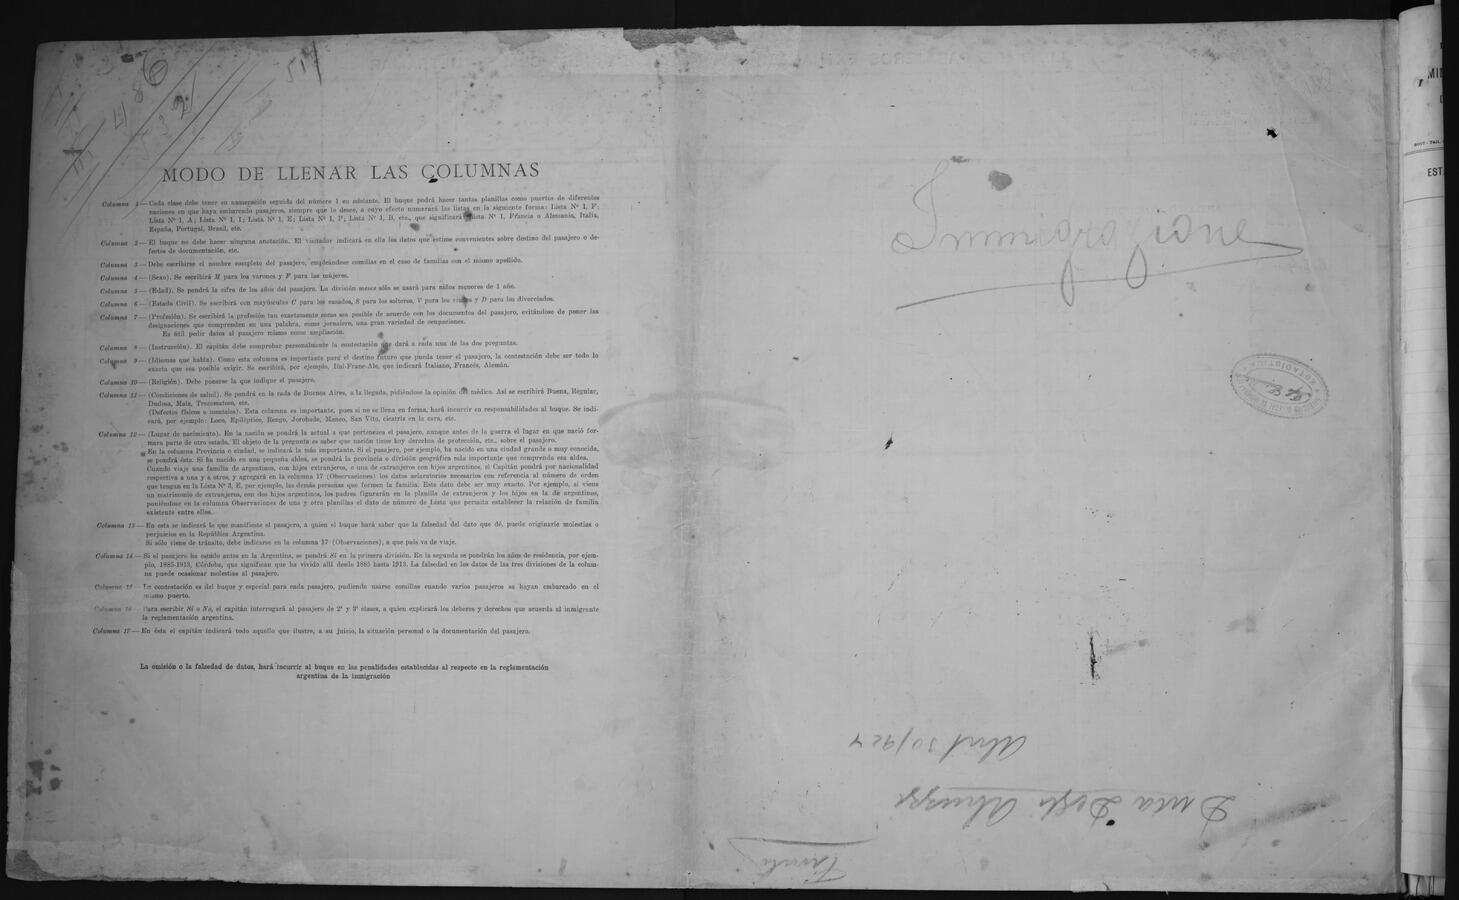 MODO DE LLENAR LAS COLUMNAS
Columna 1 — Cada clase debe tener su numeración seguida del número 1 en adelante. El buque podrá hacer tantas planillas como puertos de diferentes
naciones en que haya embarcado pasajeros, siempre que lo desee, a cuyo efecto numerará las listas en la siguiente forma: Lista Nº 1, F;
Lista Nº 1, A; Lista Nº 1, I; Lista Nº 1, E; Lista Nº 1, P; Lista Nº 1, B, etc., que significará Lista Nº 1, Francia o Alemania, Italia,
España, Portugal, Brasil, etc.
Columna 2 — El buque no debe hacer ninguna anotación. El visitador indicará en ella los datos que estime convenientes sobre destino del pasajero o de-
fectos de documentación, etc.
Columna 3 — Debe escribirse el nombre completo del pasajero, empleándose comillas en el caso de familias con el mismo apellido.
Columna 4 — (Sexo). Se escribirá M para los varones y F para las mujeres.
Columna 5 — (Edad). Se pondrá la cifra de los años del pasajero. La división meses sólo se usará para niños menores de 1 año.
Columna 6 — (Estado Civil). Se escribirá con mayúsculas C para los casados, S para los solteros, V para los viudos y D para los divorciados.
Columna 7 — (Profesión). Se escribirá la profesión tan exactamente como sea posible de acuerdo con los documentos del pasajero, evitándose de poner las
designaciones que comprenden en una palabra, como jornalero, una gran variedad de ocupaciones.
Es útil pedir datos al pasajero mismo como ampliación.
Columna 8 — (Instrucción). El capitán debe comprobar personalmente la contestación que dará a cada una de las dos preguntas.
Columna 9 — (Idiomas que habla). Como esta columna es importante para el destino futuro que pueda tener el pasajero, la contestación debe ser todo lo
exacta que sea posible exigir. Se escribirá, por ejemplo, Ital-Franc-Ale, que indicará Italiano, Francés, Alemán.
Columna 10 — (Religión). Debe ponerse la que indique el pasajero.
Columna 11 — (Condiciones de salud). Se pondrá en la rada de Buenos Aires, a la llegada, pidiéndose la opinión del médico. Así se escribirá Buena, Regular,
Dudosa, Mala, Tracomatoso, etc.
(Defectos físicos o mentales). Esta columna es importante, pues si no se llena en forma, hará incurrir en responsabilidades al buque. Se indi-
cará, por ejemplo: Loco, Epiléptico, Rengo, Jorobado, Manco, San Vito, cicatriz en la cara, etc.
Columna 12 — (Lugar de nacimiento). En la nación se pondrá la actual a que pertenezca el pasajero, aunque antes de la guerra el lugar en que nació for-
mara parte de otro estado. El objeto de la pregunta es saber que nación tiene hoy derechos de protección, etc., sobre el pasajero.
En la columna Provincia o ciudad, se indicará la más importante. Si el pasajero, por ejemplo, ha nacido en una ciudad grande o muy conocida,
se pondrá ésta. Si ha nacido en una pequeña aldea, se pondrá la provincia o división geográfica más importante que comprenda esa aldea.
Cuando viaje una familia de argentinos, con hijos extranjeros, o una de extranjeros con hijos argentinos, el Capitán pondrá por nacionalidad
respectiva a una y a otros, y agregará en la columna 17 (Observaciones) los datos aclaratorios necesarios con referencia al número de orden
que tengan en la Lista Nº 3, E, por ejemplo, las demás personas que formen la familia. Este dato debe ser muy exacto. Por ejemplo, si viene
un matrimonio de extranjeros, con dos hijos argentinos, los padres figurarán en la planilla de extranjeros y los hijos en la de argentinos,
poniéndose en la columna Observaciones de una y otra planillas el dato de número de Lista que permita establecer la relación de familia
existente entre ellos.
Columna 13 — En esta se indicará lo que manifieste el pasajero, a quien el buque hará saber que la falsedad del dato que dé, puede originarle molestias o
perjuicios en la República Argentina.
Si sólo viene de tránsito, debe indicarse en la columna 17 (Observaciones), a que país va de viaje.
Columna 14 — Si el pasajero ha estado antes en la Argentina, se pondrá Sí en la primera división. En la segunda se pondrán los años de residencia, por ejem-
plo, 1885-1913, Córdoba, que significan que ha vivido allí desde 1885 hasta 1913. La falsedad en los datos de las tres divisiones de la colum-
na puede ocasionar molestias al pasajero.
Columna 15 — La contestación es del buque y especial para cada pasajero, pudiendo usarse comillas cuando varios pasajeros se hayan embarcado en el
mismo puerto.
Columna 16 — Para escribir Si o No, el capitán interrogará al pasajero de 2ª y 3ª clases, a quien explicará los deberes y derechos que acuerda al inmigrante
la reglamentación argentina.
Columna 17 — En ésta el capitán indicará todo aquello que ilustre, a su juicio, la situación personal o la documentación del pasajero.
La omisión o la falsedad de datos, hará incurrir al buque en las penalidades establecidas al respecto en la reglementación
argentina de la inmigración
Immigrazione
ESTADISTICA
Abril 30/924
Duca Degli Abruzzi
MI
EST